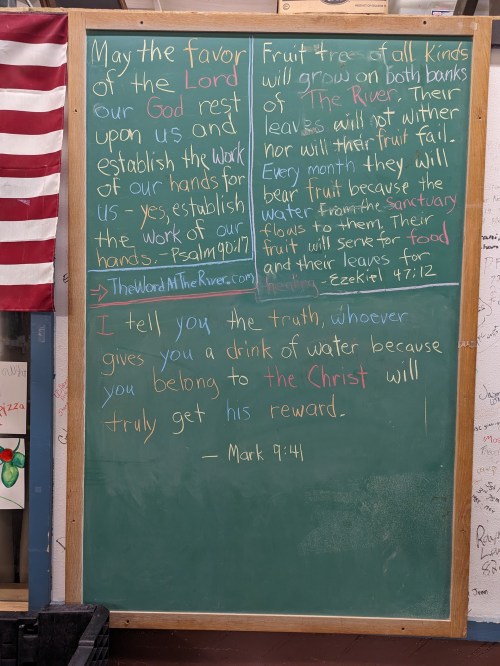 May the favor
of the Lord
our God rest
upon us and
establish the work
of our hands for
us - yes, establish
the work of our
hands. - Psalm 90:17
→ TheWordAtTheRiver.com
Fruit trees of all kinds
will grow on both banks
of The River. Their
leaves will not wither
nor will their fruit fail.
Every month they will
bear fruit because the
water from the Sanctuary
flows to them. Their
fruit will serve for food
and their leaves for
healing. - Ezekiel 47:12
I tell you the truth, whoever
gives you a drink of water because
you belong to the Christ will
truly get his reward.
- Mark 9:41
Pizza
Jenn